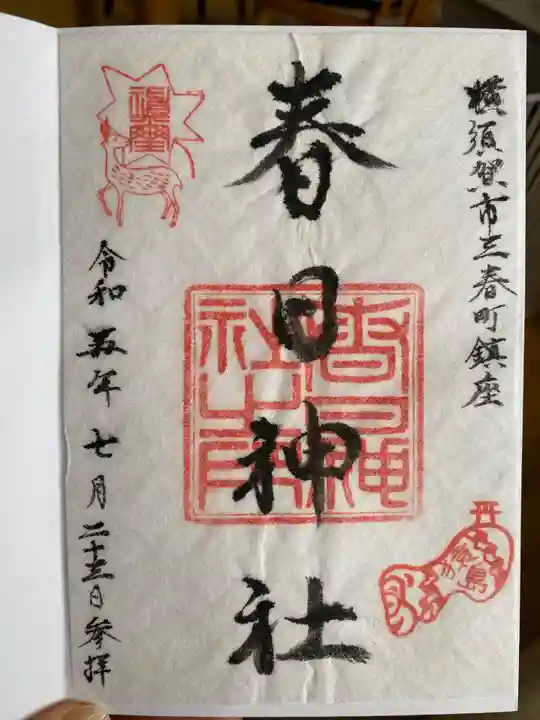 横須賀市三春町鎮座
春日神社
令和五年七月二十三日参拝
猿島